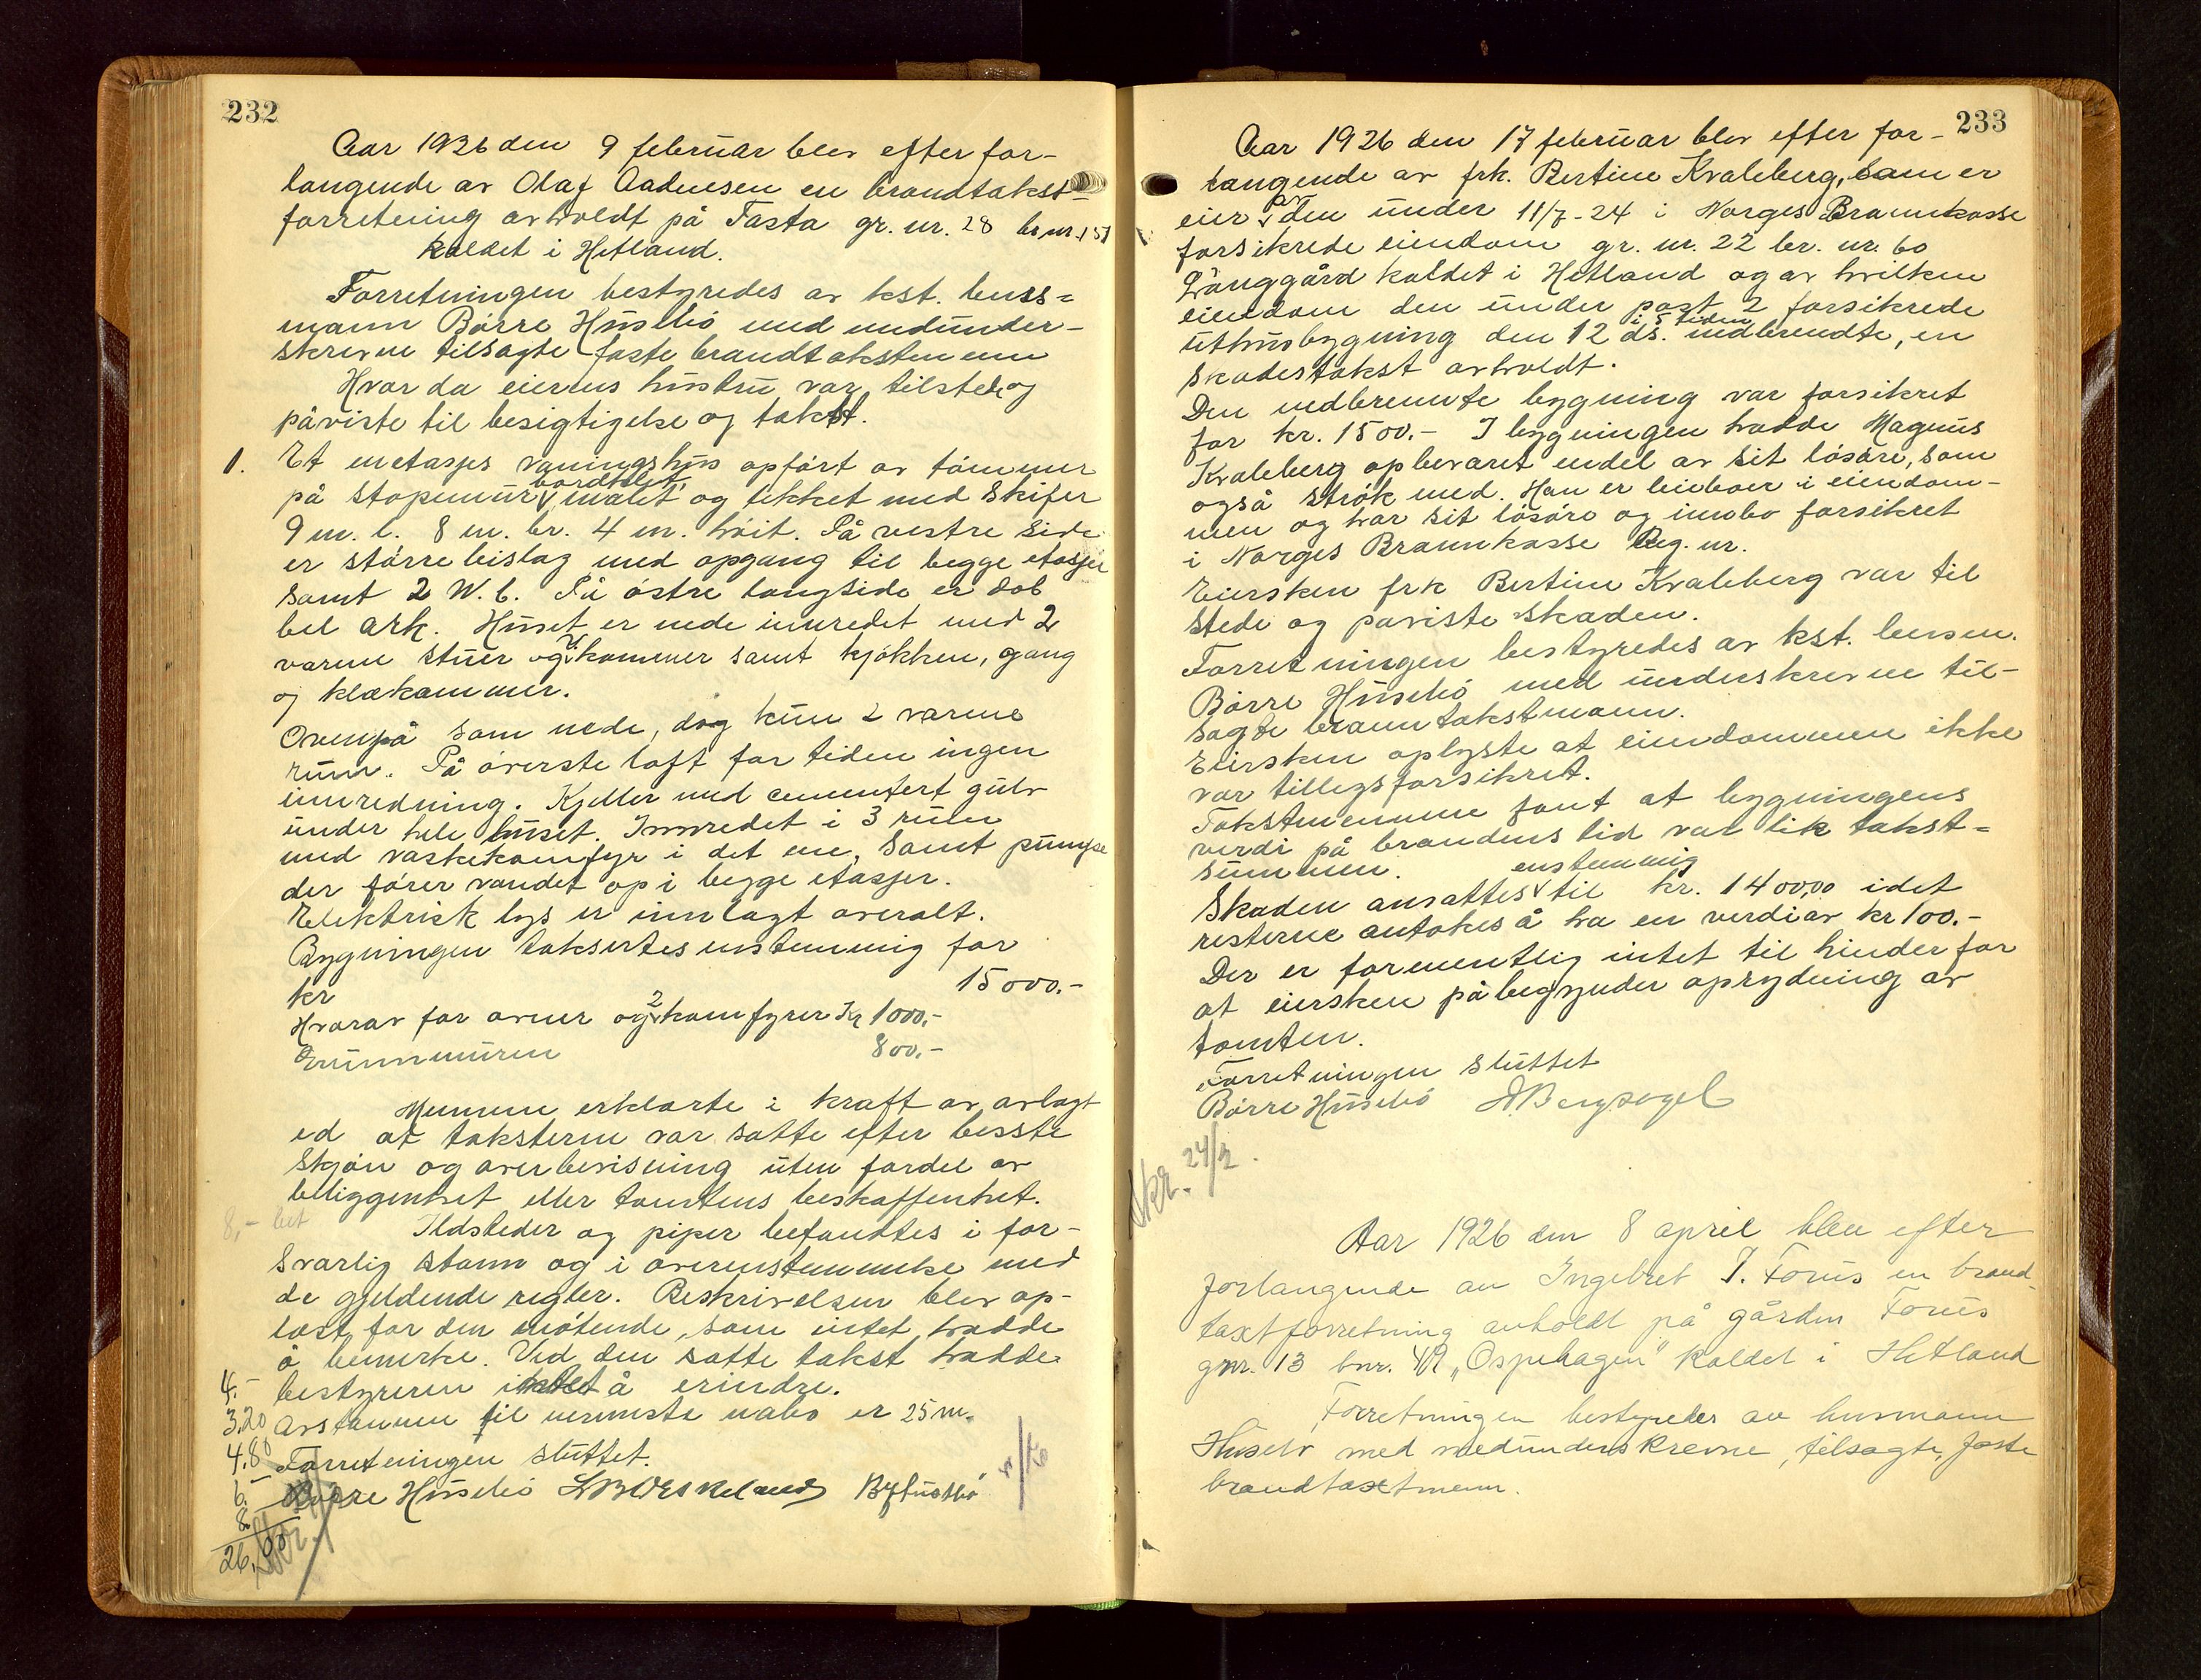 232
Aar 1926 den 9 februar blev efter for-
langende av Olaf Aadnesen en brandtakst-
forretning avholdt på Tasta gr. nr. 28 br nr. 151
kaldet i Hetland.
Forretningen bestyredes av kst. lens-
mann Börre Húsebö med medunder-
skrevne tilsagte faste brandtakstmenn
Hvor da eierens hustru var tilstede og
påviste til besigtigelse og takst.
1. Et enetasjes vaningshus opfört av tömmer
bordklet
på stopemur, malet og tekket med skifer
9 m. l. 8 m. br. 4 m. höit. På vestre side
er större bislag med opgang til begge etasjer
samt 2 W.C. På östre langside er dob
bel ark. Huset er nede innredet med 2
varme stuer og kammer samt kjökken, gang
og klækammer.
Ovenpå som nede, dog kun 2 varme
rum. På överste loft for tiden ingen
innredning. Kjeller med cementert gulv
under hele huset. Innredet i 3 rum
med vaskekomfyr i det ene, samt pumpe
der förer vandet op i begge etasjer.
Elektrisk lys er innlagt overalt.
Bygningen taksertes enstemmig for
kr 15000.-
Hvorav for ovner og 2 komfyrer Kr 1000.-
Grunnmuren 800.-
Mennene erklærte i kraft av avlagt
ed at taksterne var satte efter beste
skjön og overbevisning uten fordel av
beliggenhet eller tomtens beskaffenhet.
8,- bet
Ildsteder og piper befandtes i for-
svarlig stann og i overenstemmelse med
de gjeldende regler. Beskrivelsen blev op-
læst for den mötende, som intet hadde
å bemerke. Ved den satte takst hadde
bestyreren intet å erindre.
Avstannen til nermeste nabo er 25 m.
Forretningen sluttet.
Börre Húsebö
4.-
3.20
4.80
6.-
8.
26,00
233
Aar 1926 den 17 februar blev efter for-
langende av frk. Bertine Kvaleberg, som er
eier av den under 11/7-24 i Norges Brannkasse
forsikrede eiendom gr. nr. 22 br. nr. 60
kaldet i Hetland og av hvilken
eiendom den under post 2 forsikrede
i 5 tiden
uthusbygning den 12 ds. nedbrendte, en
skadestakst avholdt.
Den nedbrennte bygning var forsikret
for kr. 1500.- I bygningen hadde Magnus
Kvaleberg opbevaret endel av sit lösöre, som
også strök med. Han er leieboer i eiendom-
men og har sit lösöre og innbo forsikret
i Norges Brannkasse Reg. nr.
Eiersken frk Bertine Kvaleberg var til
stede og påviste skaden.
Forretningen bestyredes av kst. lensm.
Börre Húsebö med underskrevne til-
sagte branntakstmann.
Eiersken oplyste at eiendommen ikke
var tillegsforsikret.
Takstmennene fant at bygningens
verdi på brandens tid var lik takst-
summen.
enstemmig
Skaden ansattes til kr. 1400,00 idet
resterne antokes å ha en verdi av kr 100.-
Der er formentlig intet til hinder for
at eiersken påbegynder oprydning av
tomten.
Forretningen sluttet
Börre Húsebö A Bergsagel
Skr. 24/2.
Aar 1926 den 8 april blev efter
forlangende av Ingebret I. Forus en brand-
taxtforretning avholdt på gården Forus
gnr. 13 bnr. 49 "Ospehagen" kaldet i Hetland
Forretningen bestyredes av lensmann
Husebö med medunderskrevne, tilsagte, faste
brandtaxtmenn.